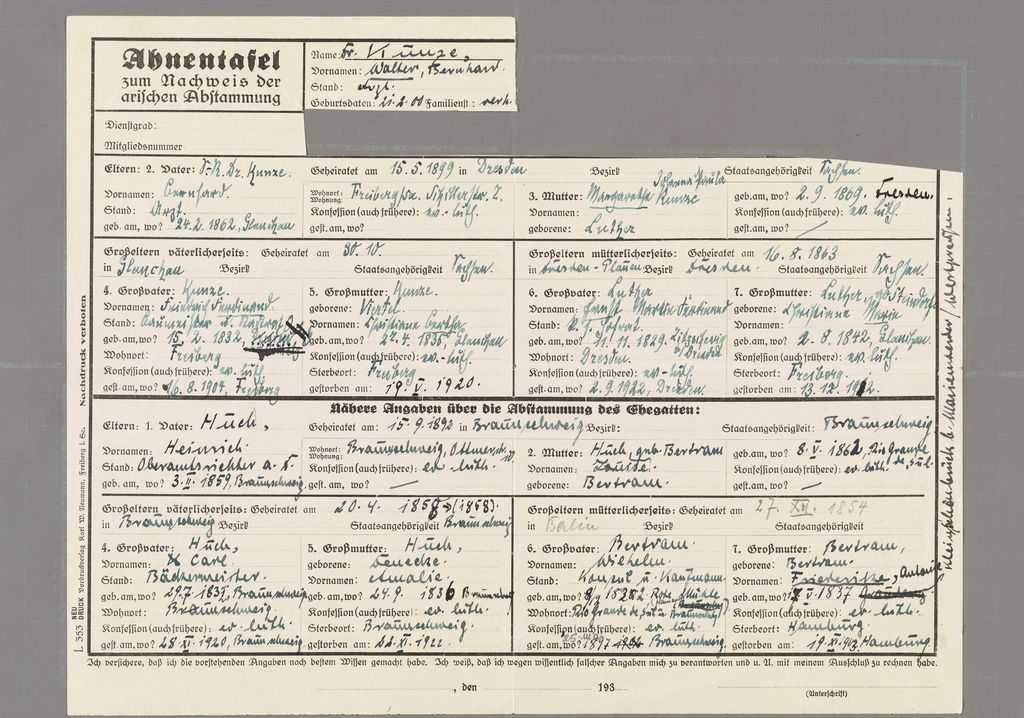 Ahnentafel
zum Nachweis der
arischen Abstammung
Name: Dr. Kunze,
Vornamen: Walter, Bernhard.
Stand: Arzt.
Geburtsdaten: 21.2.00 Familienst.: verh.
Dienstgrad:
Mitgliedsnummer
Eltern: 2. Vater: S.R. Dr. Kunze. Geheiratet am 15.5.1899 in Dresden Bezirk Staatsangehörigkeit Sachsen.
Vornamen: Bernhard. Wohnort: Wohnung: Freiberg/Sa. Schillerstr. 7. 3. Mutter: Margarethe Johanna Paula Kunze geb. am, wo? 2.9.1869. Dresden.
Stand: Arzt. Konfession (auch frühere): ev.-luth. Vornamen: Konfession (auch frühere): ev. luth.
geb. am, wo? 24.2.1862, Glauchau gest. am, wo? geborene: Luther gest. am, wo? —
Großeltern väterlicherseits: Geheiratet am 30.10. Großeltern mütterlicherseits: Geheiratet am 16.8.1863
in Glauchau Bezirk Staatsangehörigkeit Sachsen. in Dresden-Plauen Bezirk Dresden. Staatsangehörigkeit Sachsen.
4. Großvater: Kunze. 5. Großmutter: Kunze. 6. Großvater: Luther 7. Großmutter: Luther, geb.
Vornamen: Friedrich Ferdinand geborene: Viertel Vornamen: Ernst Martin Ferdinand geborene: Christiane
Stand: Vornamen: Christiane Bertha Stand: Vornamen: Maria
geb. am, wo? 15.2.1832, geb. am, wo? 22.4.1835, Glauchau geb. am, wo? 11.11.1829. geb. am, wo? 2.8.1842, Glauchau.
Wohnort: Freiberg Konfession (auch frühere): ev.-luth. Wohnort: Dresden. Konfession (auch frühere): ev. luth.
Konfession (auch frühere): ev.-luth. Sterbeort: Freiberg Konfession (auch frühere): ev.-luth. Sterbeort: Freiberg.
gest. am, wo? 16.8.1904, Freiberg gestorben am: 19.V.1920. gest. am, wo? 2.9.1922, Dresden. gestorben am: 13.12.
Nähere Angaben über die Abstammung des Ehegatten:
Eltern: 1. Vater: Huch, Geheiratet am: 15.9.1892 in Braunschweig Bezirk: Staatsangehörigkeit: Braunschweig
Vornamen: Heinrich Wohnort: Wohnung: Braunschweig, 2. Mutter: Huch, geb. Bertram geb. am, wo? 8.V.1862, Rio Grande do Sul.
Stand: Oberamtsrichter a. D. Konfession (auch frühere): ev. luth. Vornamen: Louise Konfession (auch frühere): ev. luth.
geb. am, wo? 3.II.1859, Braunschweig. gest. am, wo? — geborene: Bertram. gest. am, wo? —
Großeltern väterlicherseits: Geheiratet am 20.4. 1858 (1858). Großeltern mütterlicherseits: Geheiratet am 27. XII. 1854
in Braunschweig Bezirk Staatsangehörigkeit Braunschweig in Berlin Bezirk Staatsangehörigkeit
4. Großvater: Huch, 5. Großmutter: Huch, 6. Großvater: Bertram. 7. Großmutter: Bertram,
Vornamen: Carl geborene: Vornamen: Wilhelm. geborene: Bertram.
Stand: Bäckermeister. Vornamen: Amalie. Stand: Konsul u. Kaufmann. Vornamen: Friederike,
geb. am, wo? 29.7.1832, Braunschweig geb. am, wo? 24.9.1836 Braunschweig geb. am, wo? geb. am, wo? V.1837
Wohnort: Braunschweig. Konfession (auch frühere): ev. luth. Wohnort: Rio Grande do Sul u. Braunschweig Konfession (auch frühere): ev. luth.
Konfession (auch frühere): ev. luth. Sterbeort: Braunschweig. Konfession (auch frühere): ev. luth. Sterbeort: Hamburg.
gest. am, wo? 28.XI.1920, Braunschweig gestorben am: 1922. gest. am, wo? 1897 Braunschweig. gestorben am: Hamburg
Ich versichere, daß ich die vorstehenden Angaben nach bestem Wissen gemacht habe. Ich weiß, daß ich wegen wissentlich falscher Angaben mich zu verantworten und u. U. mit meinem Ausschluß zu rechnen habe.
, den 193
(Unterschrift)
Nachdruck verboten
L 353 NEU DRUCK Vordruckverlag Karl W. Neumann, Freiberg i. Sa.
b. Marienwerder / Westpreußen.